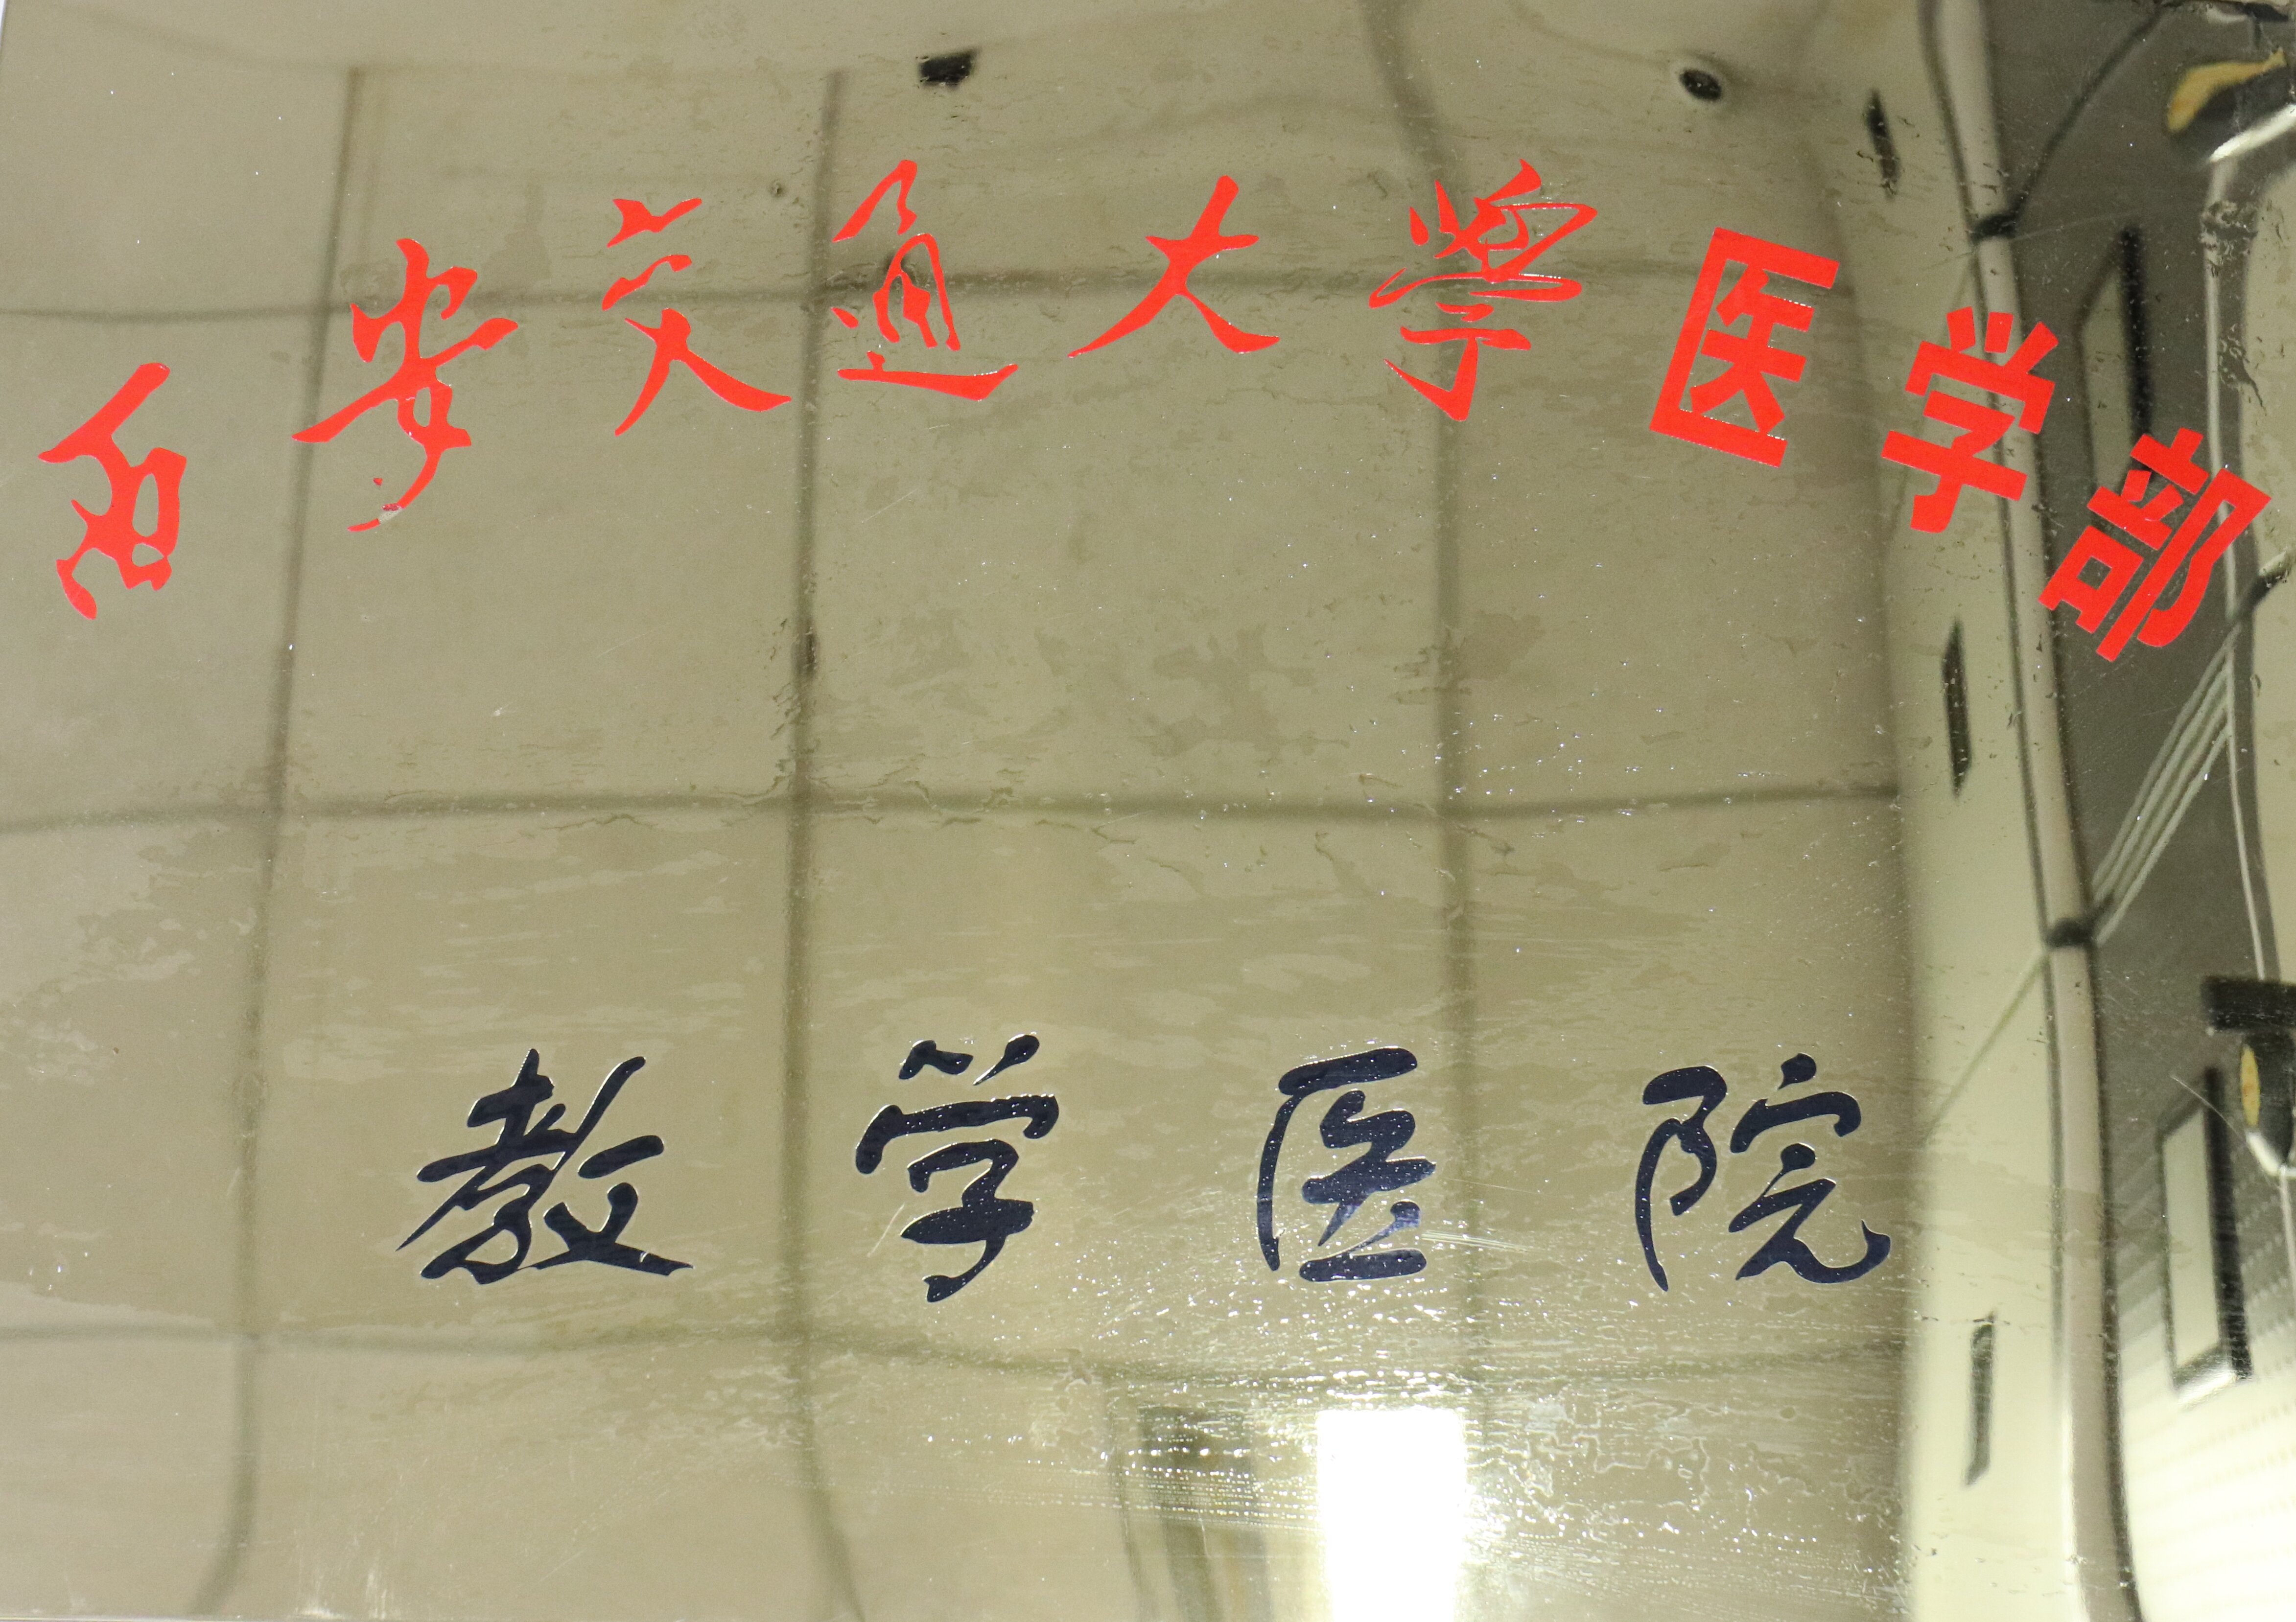 西安交通大學医学部
教学医院